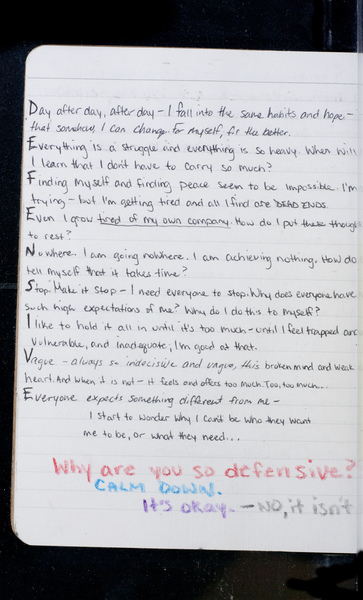 Day after day, after day - I fall into the same habits and hope -
that somehow, I can change. For myself, for the better.
Everything is a struggle and everything is so heavy. When will
I learn that I don't have to carry so much?
Finding myself and finding peace seem to be impossible. I'm
trying - but I'm getting tired and all I find are DEAD ENDS.
Even I grow tired of my own company. How do I put these though
to rest?
Nowhere. I am going nowhere. I am achieving nothing. How do
tell myself that it takes time?
Stop. Make it stop - I need everyone to stop. Why does everyone have
such high expectations of me? Why do I do this to myself?
I like to hold it all in until it's too much - until I feel trapped and
vulnerable, and inadequate; I'm good at that.
Vague - always so indecisive and vague, this broken mind and weak
heart. And when it is not - it feels and offers too much. Too, too much...
Everyone expects something different from me -
I start to wonder why I can't be who they want
me to be, or what they need...
Why are you so defensive?
CALM DOWN.
It's okay. - NO, it isn't